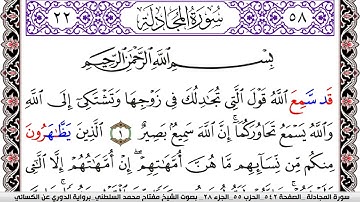 ٥٨ سُورَةُ المُجَادلَةِ ٢٢
بِسْمِ اللَّهِ الرَّحْمَٰنِ الرَّحِيمِ
قَد سَّمِعَ اللَّهُ قَوْلَ الَّتِي تُجَٰدِلُكَ فِي زَوْجِهَا وَتَشْتَكِي إِلَى اللَّهِ
وَاللَّهُ يَسْمَعُ تَحَاوُرَكُمَا إِنَّ اللَّهَ سَمِيعٌ بَصِيرٌ ١ الَّذِينَ يَظَّٰهَرُونَ
مِنكُم مِّن نِّسَآئِهِم مَّا هُنَّ أُمَّهَٰتِهِمْ إِنْ أُمَّهَٰتُهُمْ إِلَّا الَّٰٓـِٔي
سورة المجادلة . الصفحة ٥٤٢ . الحزب ٥٥ . الجزء ٢٨ . بصوت الشيخ مفتاح محمد السلطني . برواية الدوري عن الكسائي